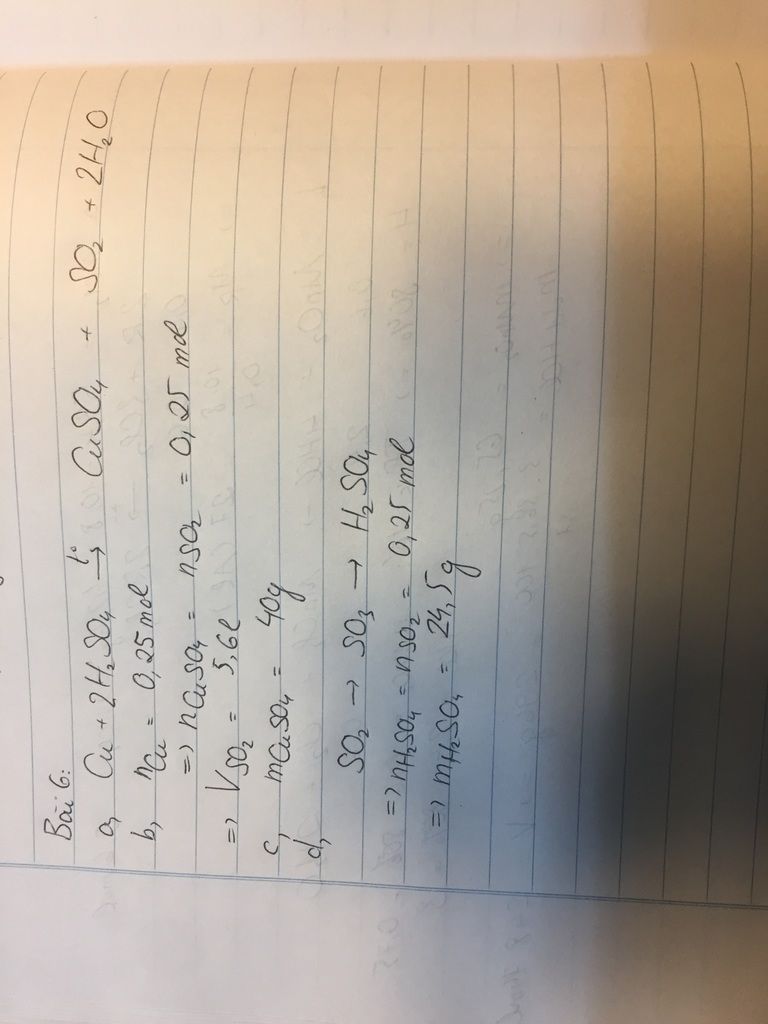 Bài 6:
a, Cu + 2H₂SO₄ →t° CuSO₄ + SO₂ + 2H₂O
b, nCu = 0,25 mol
=> nCuSO₄ = nSO₂ = 0,25 mol
=> VSO₂ = 5,6l
c, mCuSO₄ = 40g
d,
SO₂ → SO₃ → H₂SO₄
=> nH₂SO₄ = nSO₂ = 0,25 mol
=> mH₂SO₄ = 24,5g